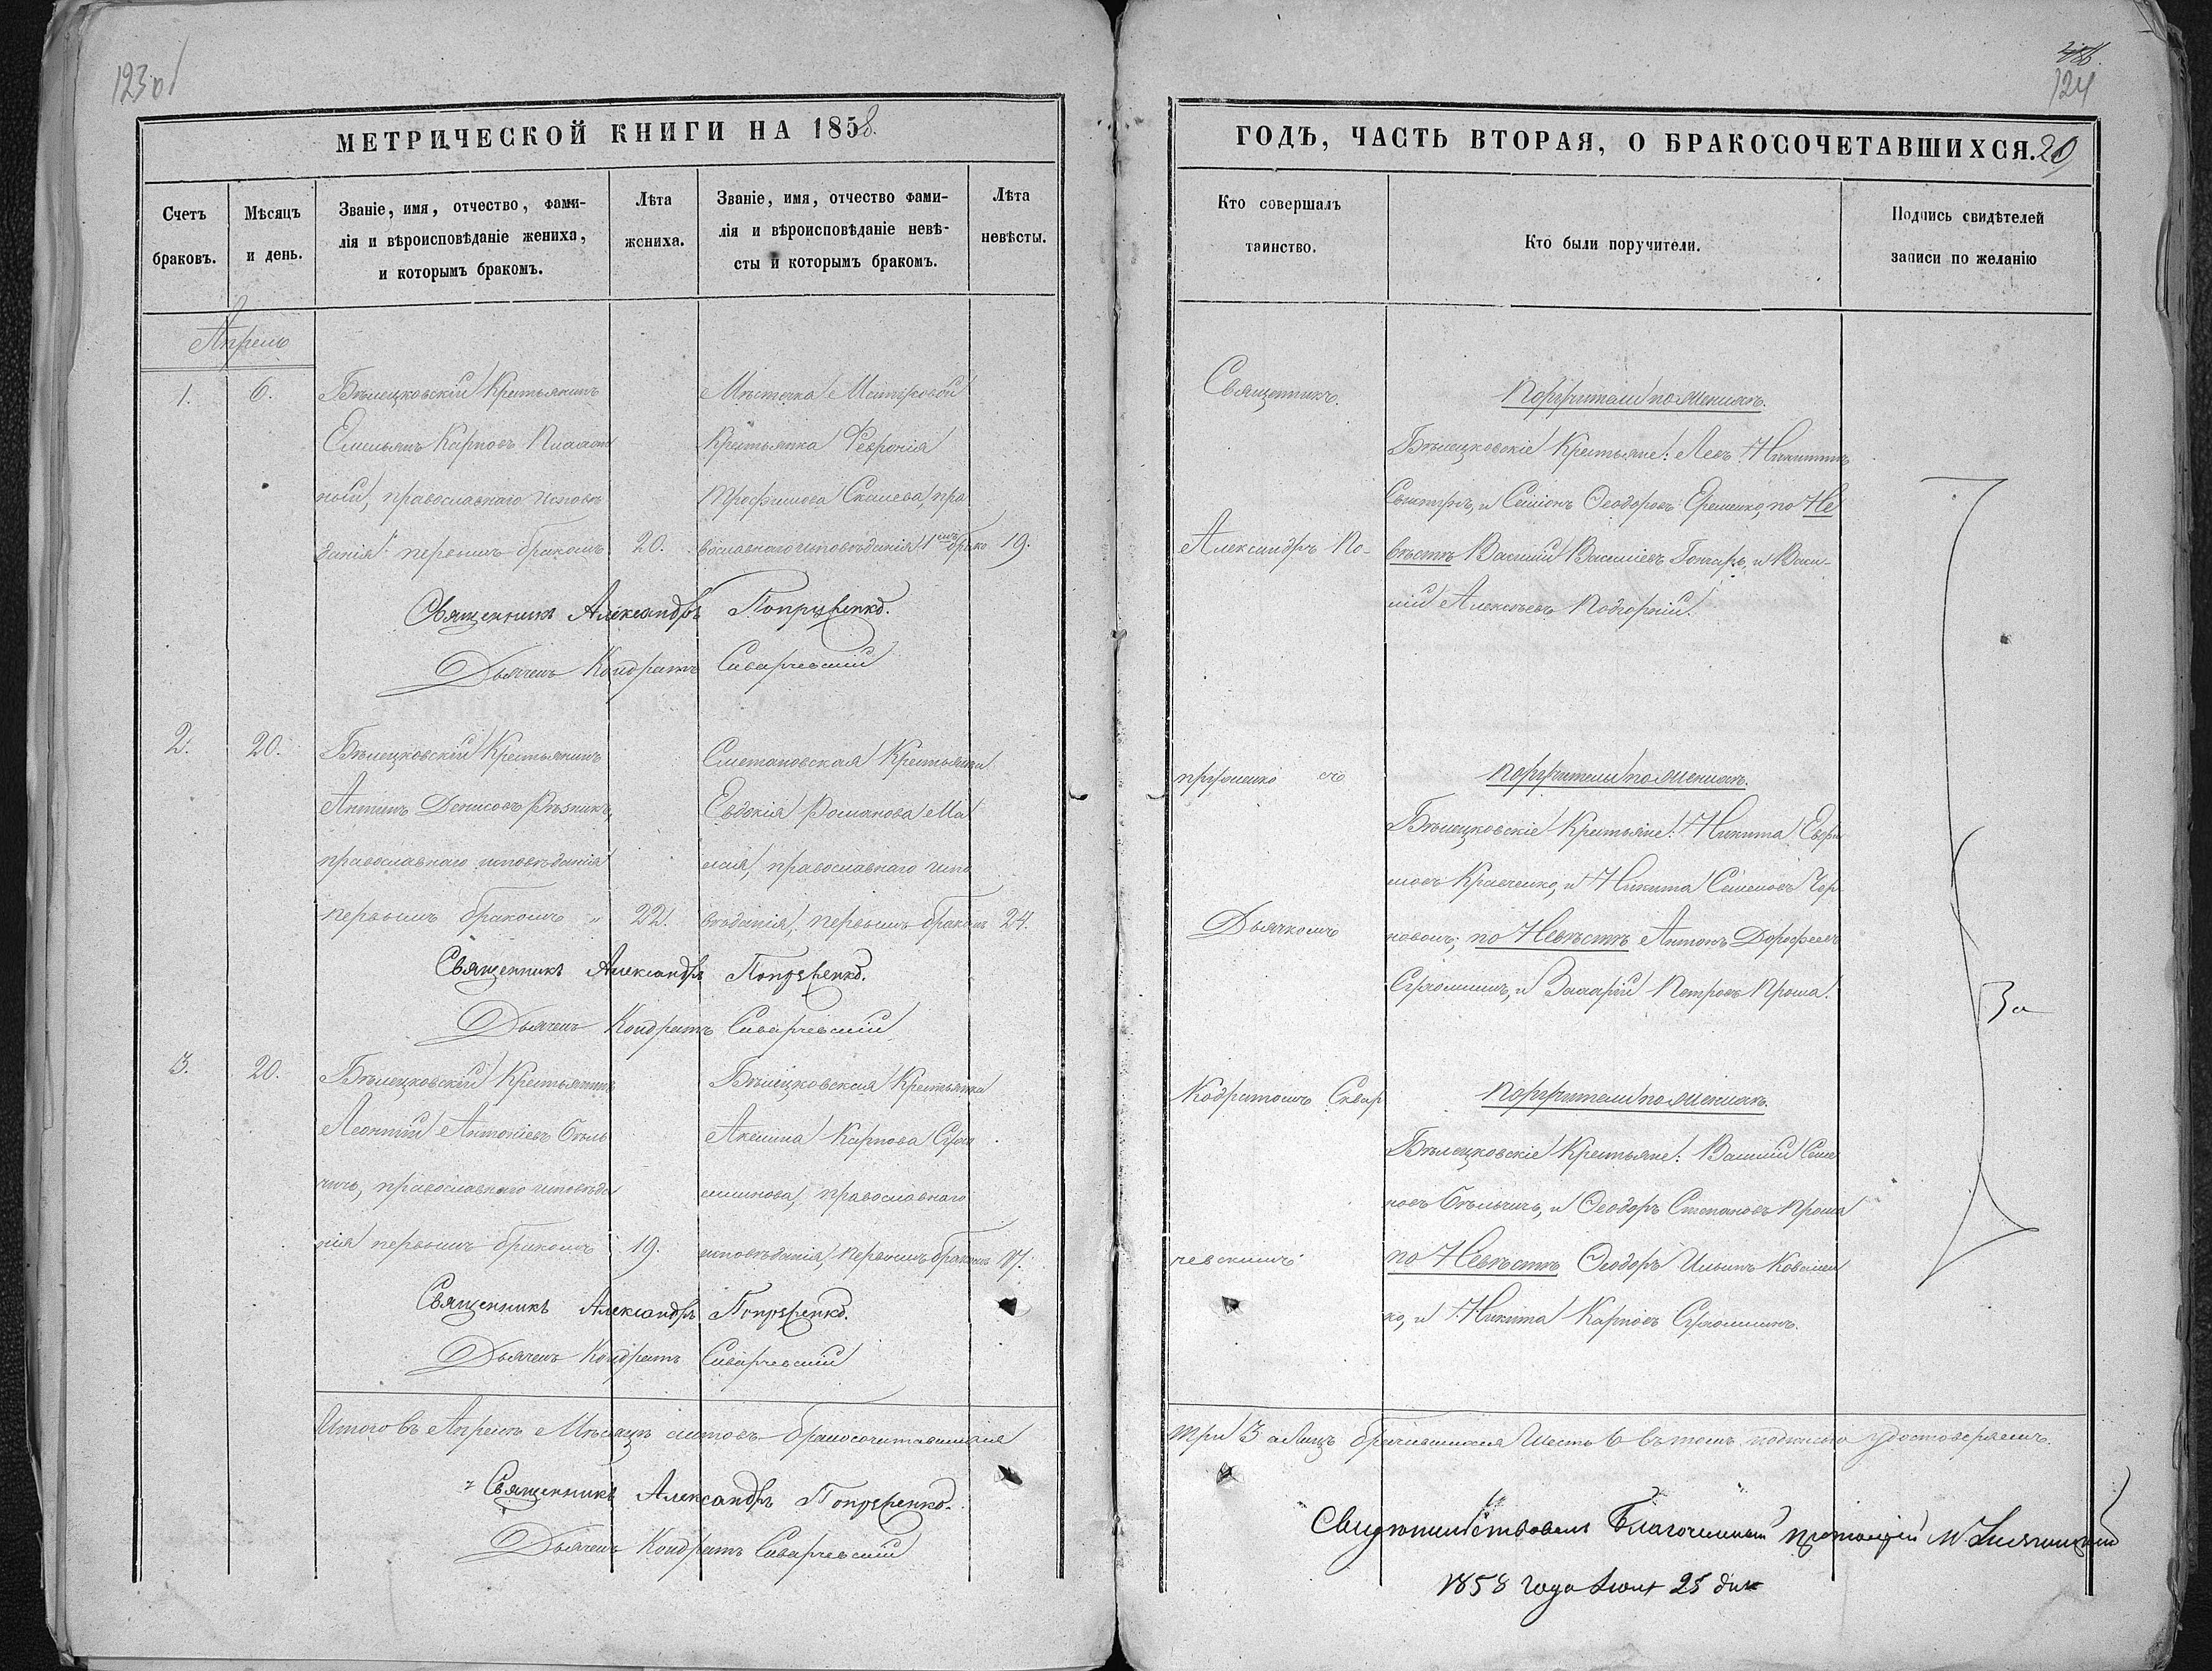 123 об
МЕТРИЧЕСКОЙ КНИГИ НА 1858.
Счетъ браковъ.
Мѣсяцъ и день.
Званіе, имя, отчество, фами-
лія и вѣроисповѣданіе жениха,
и которымъ бракомъ.
Лѣта жениха.
Званіе, имя, отчество фами-
лія и вѣроисповѣданіе невѣ-
сты и которымъ бракомъ.
Лѣта невѣсты.
Апрель
1. 6.
Бѣлецковскій Крестьянинъ
Емельянъ Карповъ
православнаго исповѣ
данія первымъ бракомъ 20.
Мѣстечка
Крестьянка Феврония
Трофимова пра
вославнаго исповѣданія 1мъ брако 19.
Священникъ Александръ Попруженко.
Дьячекъ Кондратъ Скварчевскій
2. 20.
Бѣлецковскій Крестьянинъ
Антинъ Денисовъ Рѣзникъ,
православнаго исповѣданія
первымъ бракомъ " 22.
Сметановская Крестьянка
Евдокія Романова Ма
лая, православнаго испо
вѣданія, первымъ бракомъ 24.
Священникъ Александръ Попруженко.
Дьячекъ Кондратъ Скварчевскій
3. 20.
Бѣлецковскій Крестьянинъ
Леонтій Антоніевъ Бѣль
чичь, православнаго исповѣда
нія первымъ бракомъ 19.
Бѣлецковская Крестьянка
Акилина Карпова
православнаго
исповѣданія, первымъ бракомъ 17.
Священникъ Александръ Попруженко.
Дьячекъ Кондратъ Скварчевскій
Итого въ Апрелѣ Мѣсяцѣ актовъ бракосочитавшихся
Священникъ Александръ Попруженко.
Дьячекъ Кондратъ Скварчевскій
124
ГОДЪ, ЧАСТЬ ВТОРАЯ, О БРАКОСОЧЕТАВШИХСЯ.
Кто совершалъ таинство.
Кто были поручители.
Подпись свидѣтелей
записи по желанію
Священникъ
Александръ По-
пруженко съ
Дьячкомъ
Кодратомъ Сквар
чевскимъ
Поручители по Женихѣ.
Бѣлецковскіе Крестьяне: Левъ Никитинъ
и Семіонъ Ѳеодоровъ Еременко, по Не
вѣстѣ Василій Василіевъ Гончаръ, и Васи-
лій Алексѣевъ Подгорній.
Поручители по Женихѣ.
Бѣлецковскіе Крестьяне: Никита Ефри
мовъ Кравченко, и Никита Семеновъ
по Невѣстѣ Антонъ Дорофеевъ
и Захарій Петровъ Проша.
За
Поручители по Женихѣ.
Бѣлецковскіе Крестьяне: Василій Семе
новъ Бѣльчичь, и Ѳеодоръ Степановъ Проша
по Невѣстѣ Ѳеодоръ Ильинъ Ковален
ко, и Никита Карповъ
три 3 а лицъ брачившихся шесть 6 въ томъ подписью удостоверяемъ.
Свидѣтельствовалъ Благочинный протоіерей
1858 года 25 дня